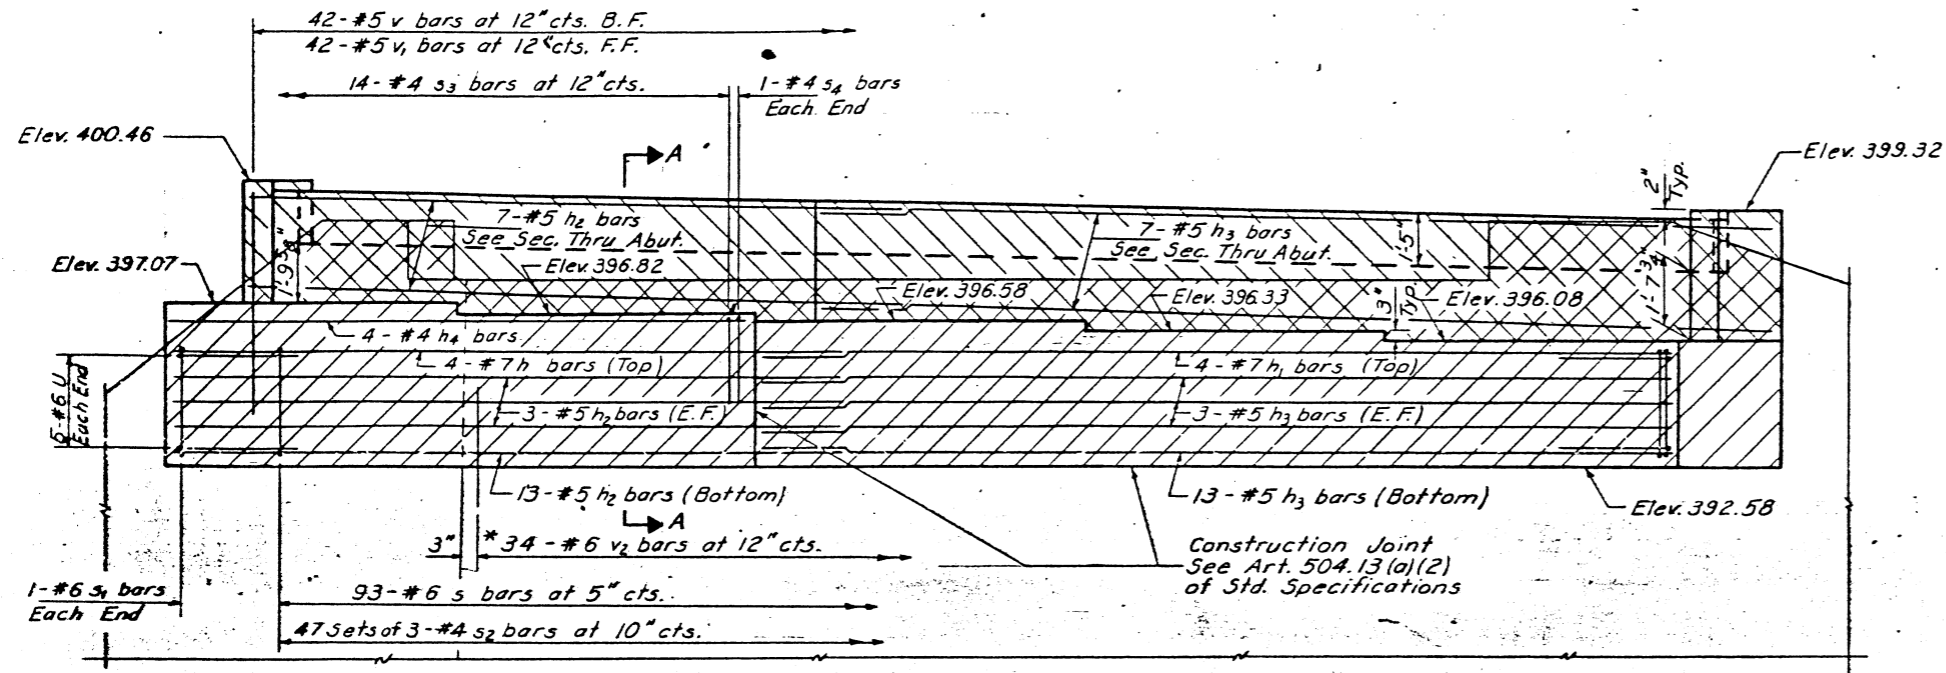 42-#5 v bars at 12" cts. B.F.
42-#5 v₁ bars at 12" cts. F.F.
14-#4 s₃ bars at 12" cts.
1-#4 s₄ bars
Each End
Elev. 400.46
A
Elev. 399.32
2"
Typ.
7-#5 h₂ bars
See Sec. Thru Abut.
7-#5 h₃ bars
See Sec. Thru Abut.
1'-5"
Elev. 397.07
1'-9 5/8"
Elev. 396.82
Elev. 396.58
Elev. 396.33
3"
Typ.
Elev. 396.08
1'-7 3/4"
4-#4 h₄ bars
4-#7 h bars (Top)
4-#7 h₁ bars (Top)
5-#6 U
Each End
3-#5 h₂ bars (E.F.)
3-#5 h₃ bars (E.F.)
13-#5 h₂ bars (Bottom)
13-#5 h₃ bars (Bottom)
Elev. 392.58
A
3"
*34-#6 v₂ bars at 12" cts.
Construction Joint
See Art. 504.13 (a)(2)
of Std. Specifications
1-#6 s₁ bars
Each End
93-#6 s bars at 5" cts.
47 Sets of 3-#4 s₂ bars at 10" cts.